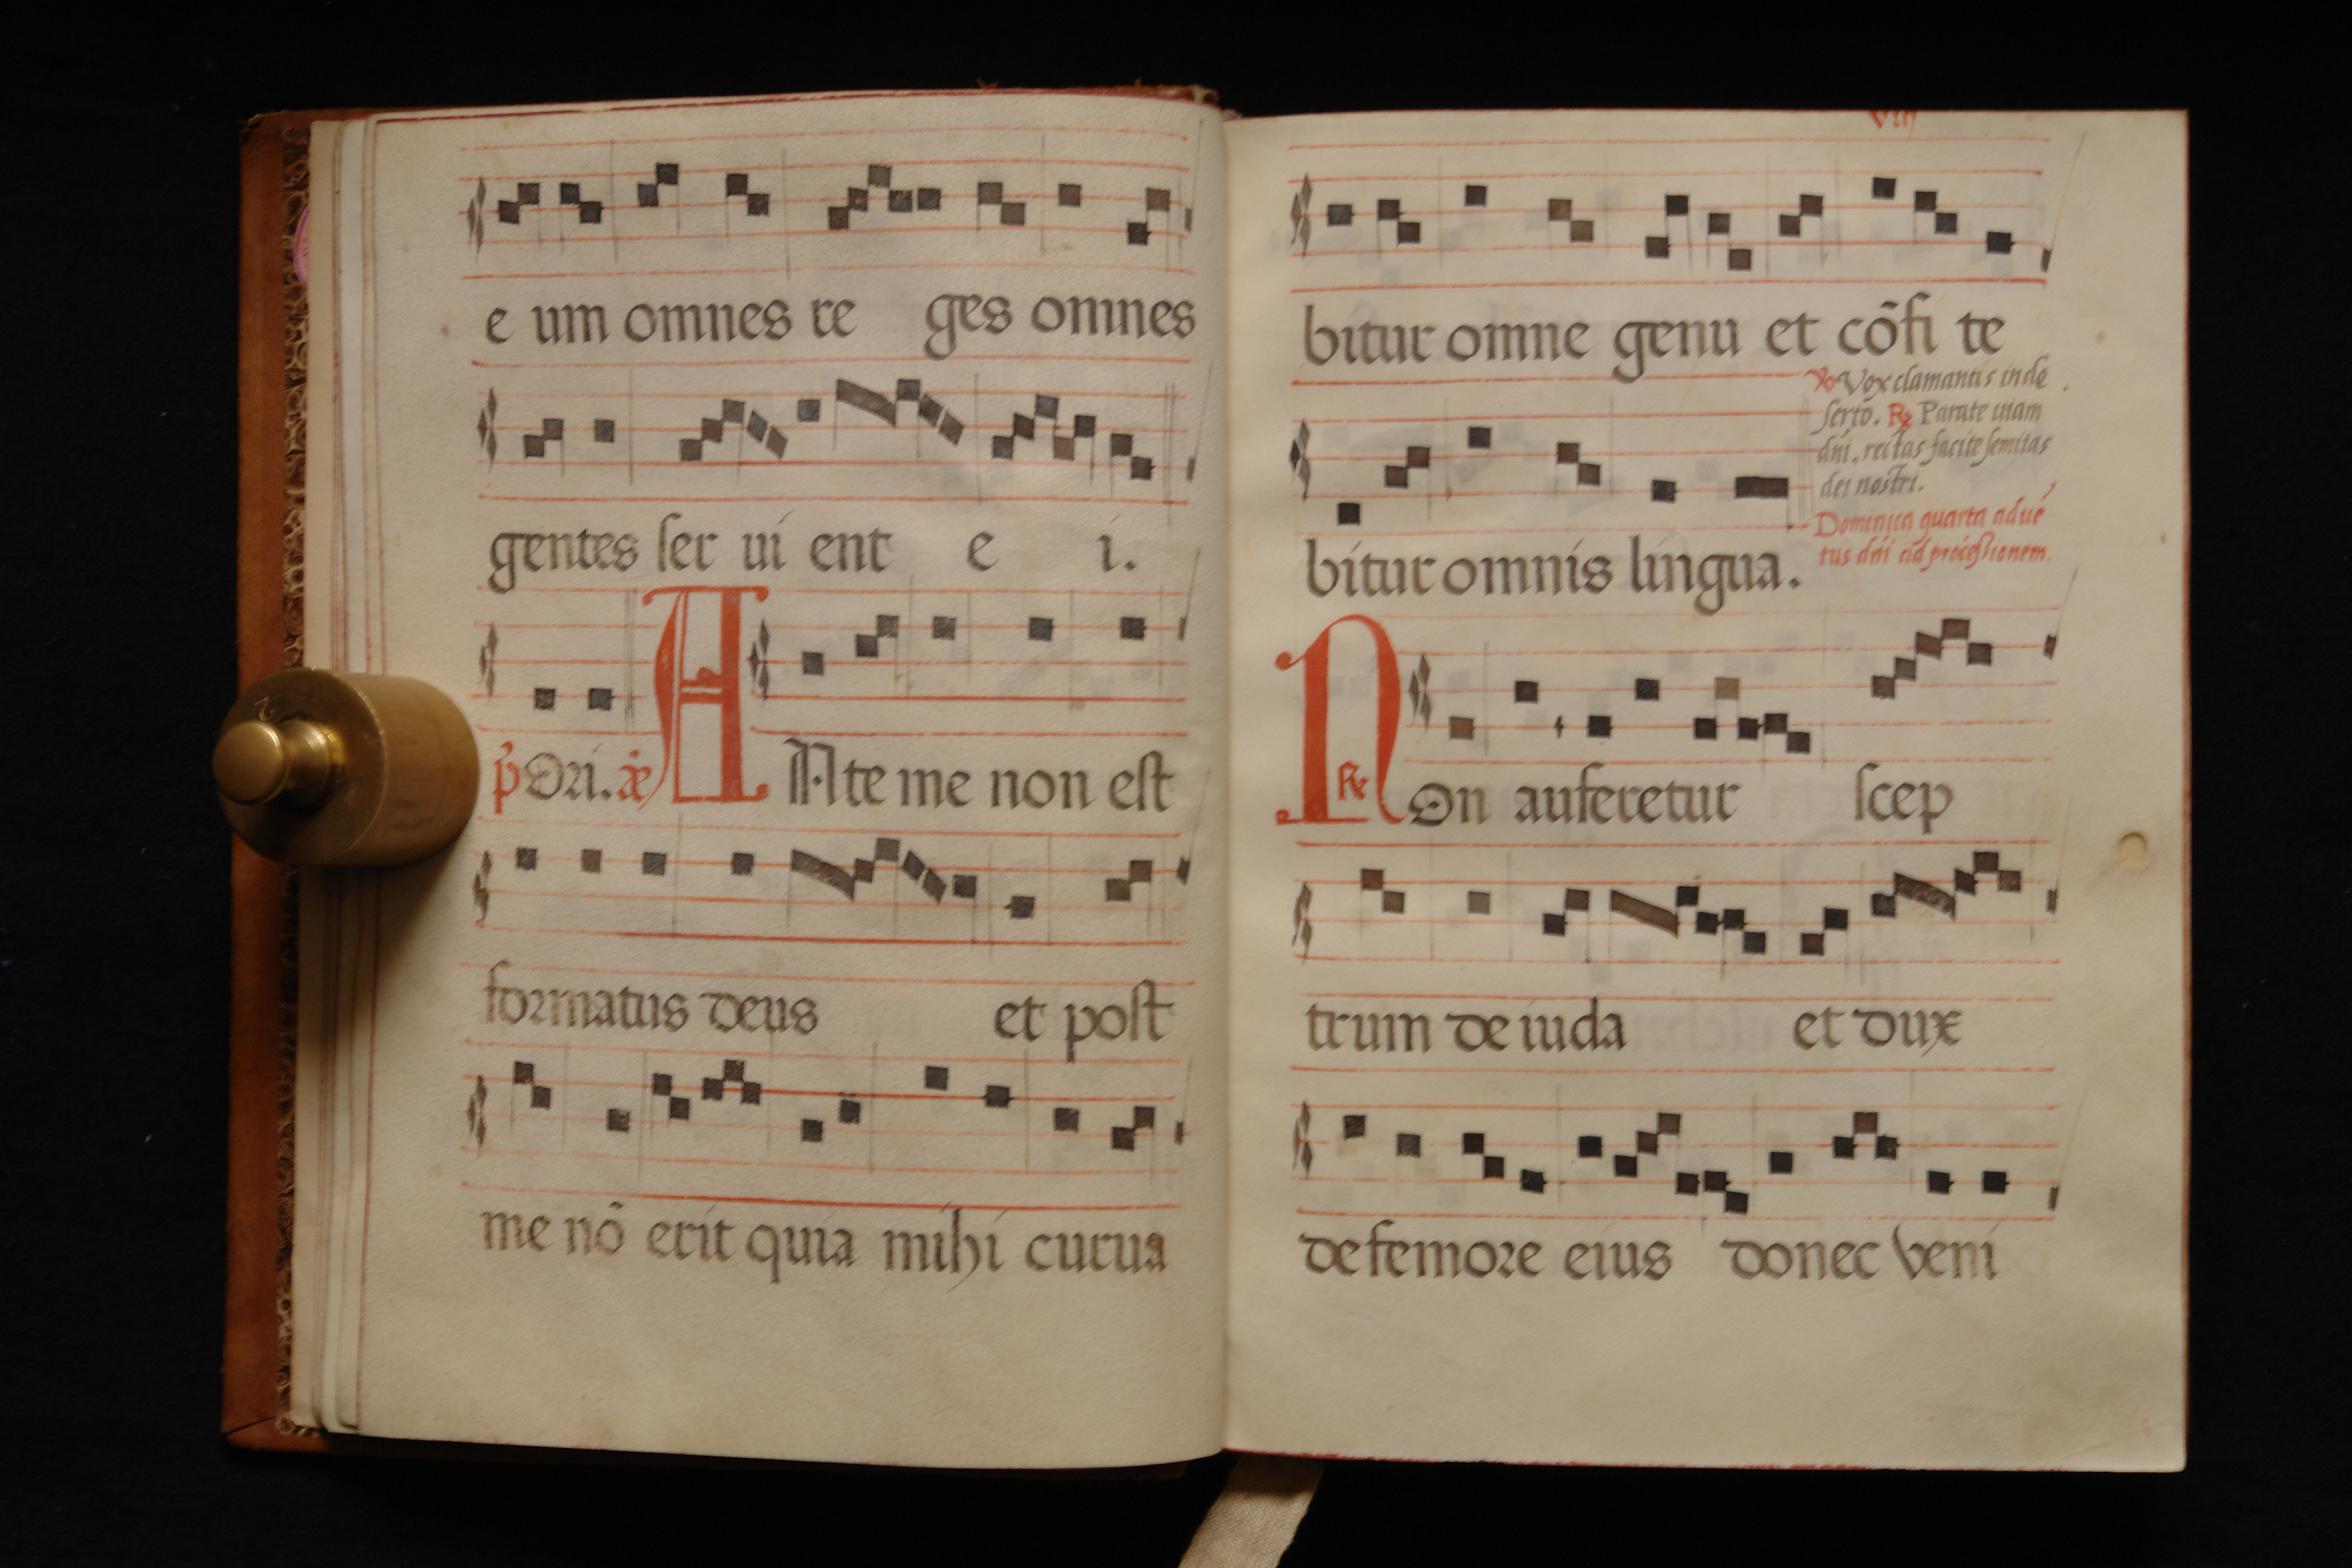 e um omnes re ges omnes
gentes ser ui ent e i.
p̃ Ori. añ A Ate me non est
formatus deus et post
me nõ erit quia mihi curua
viij
bitur omne genu et cõfi te
℣ Vox clamantis in de
serto. ℟ Parate uiam
dñi. rectas facite semitas
dei nostri.
bitur omnis lingua.
Dominica quarta adué
tus dñi ad processionem.
N ℟ On auferetur scep
trum de iuda et dux
de femore eius donec veni